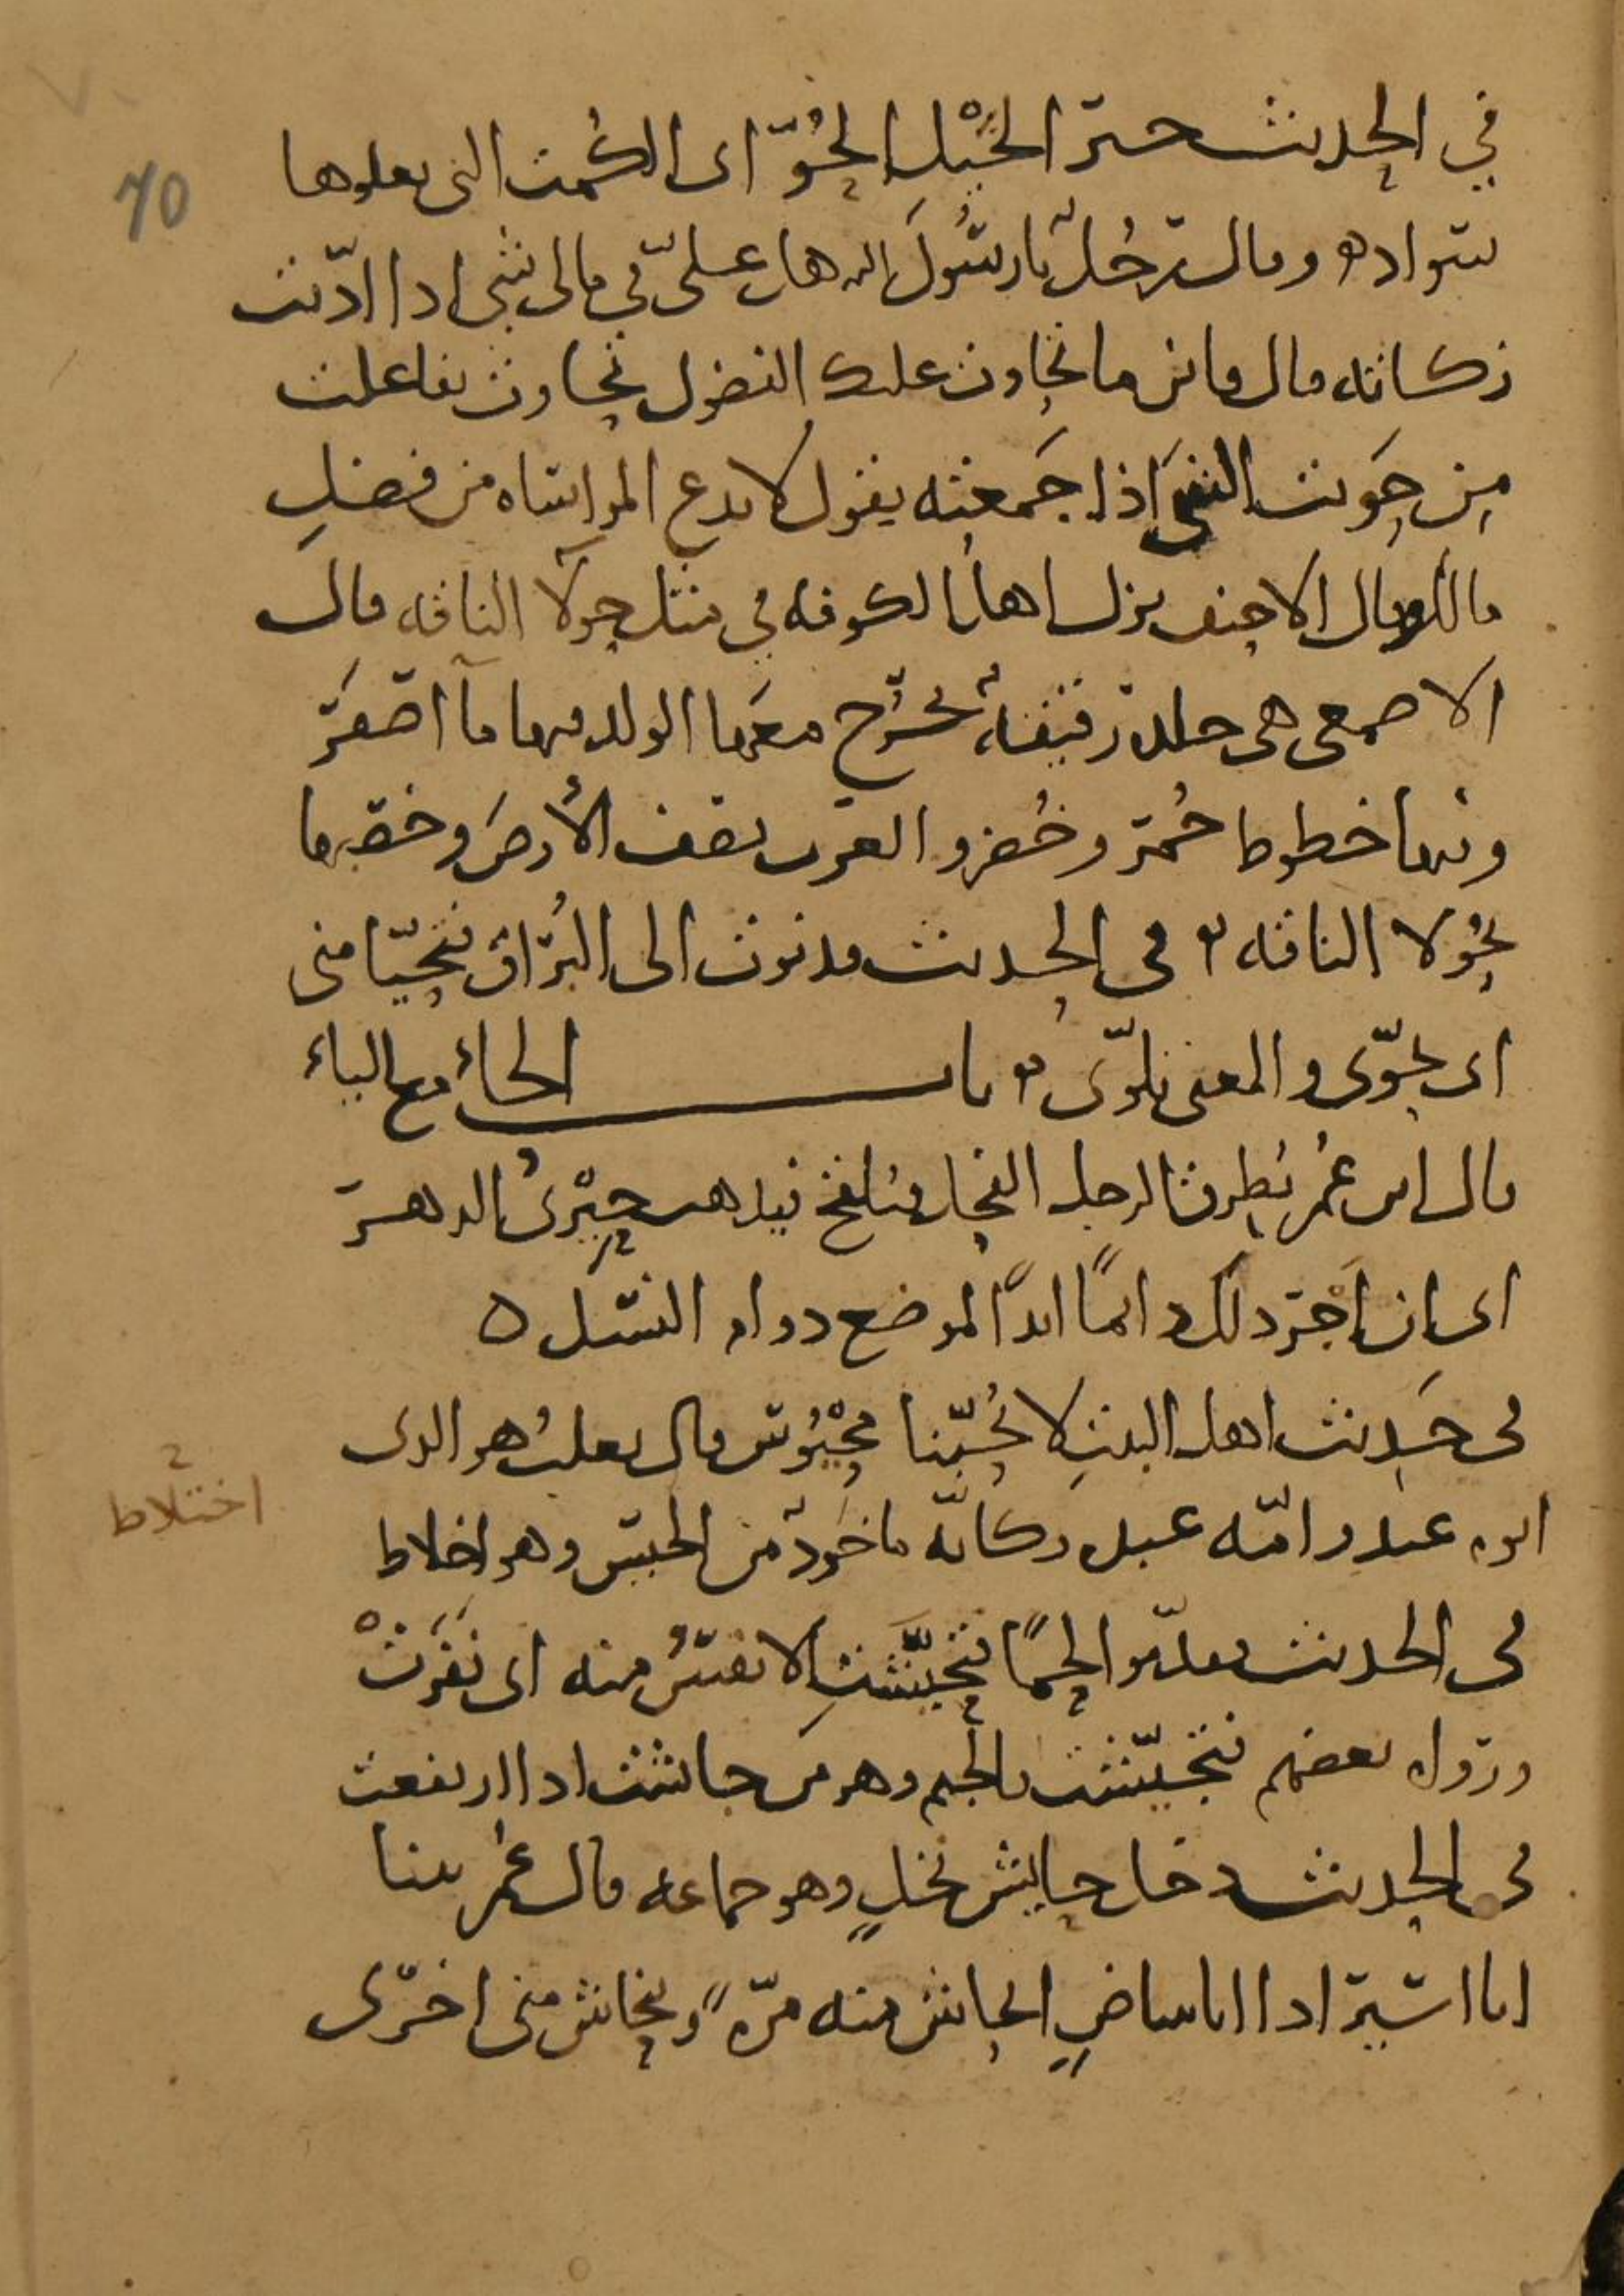 في الحديث خير الخَيْلِ الحُوّ اى الكُمت التى يعلوها
سواده وقال رَجُلٌ يا رسُولَ الله هل علىّ في مالى شي اذا ادّيت
زكاته قال فاين ما تحاوت عليك الفضول تحاوت تفاعلت
مِن حَويت الشيَ اذا جَمعته يقول لا تدع المواساه من فضلِ
مالك وقال الاحنف نزل اهل الكوفه في مثل حولآ الناقه قال
الاصمعي هى جلده رقيقهٌ تخرُج معَها الولد فيها مآ اصْفرّ
وفيها خطوط حُمر وخُضر والعرب تصف الأرضَ وخضرها
بحُولا الناقه ٥ فى الحديث فدنوت الى البُرَاق فتحيّا منى
اى تحوّى والمعنى تلوّى ٥ باب الحاء مع الياء
قال ابن عُمر يُطرق الرجل الفحل فيلقح فيذهب حِيْرىُ الدهر
اى ان اجرَ ذلك دائمًا ابدًا لموضع دوام النسْل ٥
فى حَديث اهل البيتِ لا يُحبّنا مَحْيُوس قال ثعلبُ هو الذى
ابوه عبد وامّه عبده وكانّه ماخوذٌ من الحيس وهو اخلاط
اختلاط
فى الحديث فقدّموا لحمًا فتحيّشَتِ الانفسُ منه اى نَفَرَتْ
ورواه بعضهم فتجيّشت بالجيم وهو من جاشت اذا ارتفعت
فى الحديث دخل حايش نخلٍ وهو جماعه قال عُمر بينا
انا اسير اذا انا بياضٍ انحاش منه مرّةً وينحاش منى اخرى
70